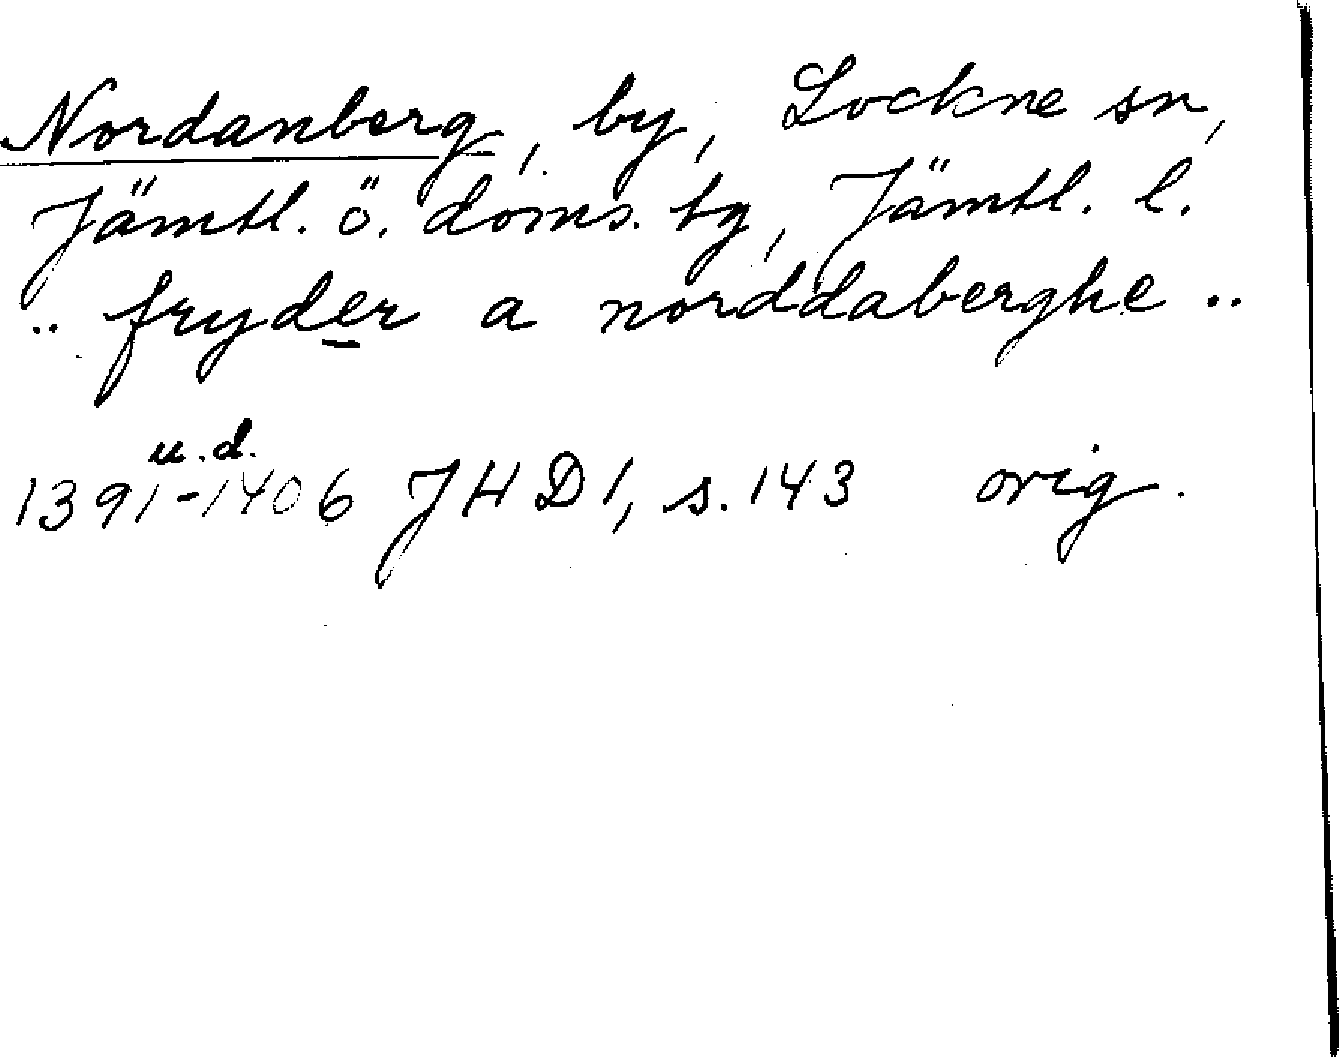 Nordanberg, by, Lockne sn,
Jämtl. ö. doms. tg, Jämtl. l.
.. fryder a norddaberghe ..
u.d.
1391-1406 JHD 1, s. 143 orig.